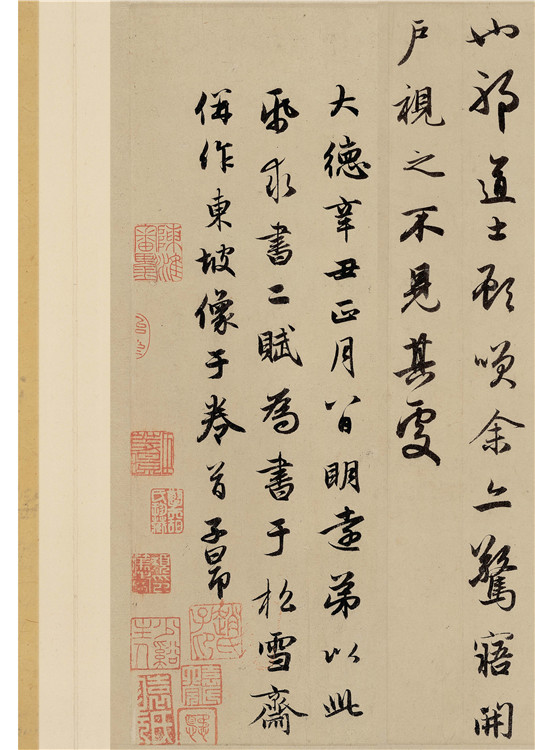 也耶道士顾唉余亦驚寤開
户視之不見其處
大德辛丑正月八日明遠弟以此
紙求書二賦為書于松雪齋
併作東坡像于卷首子昂